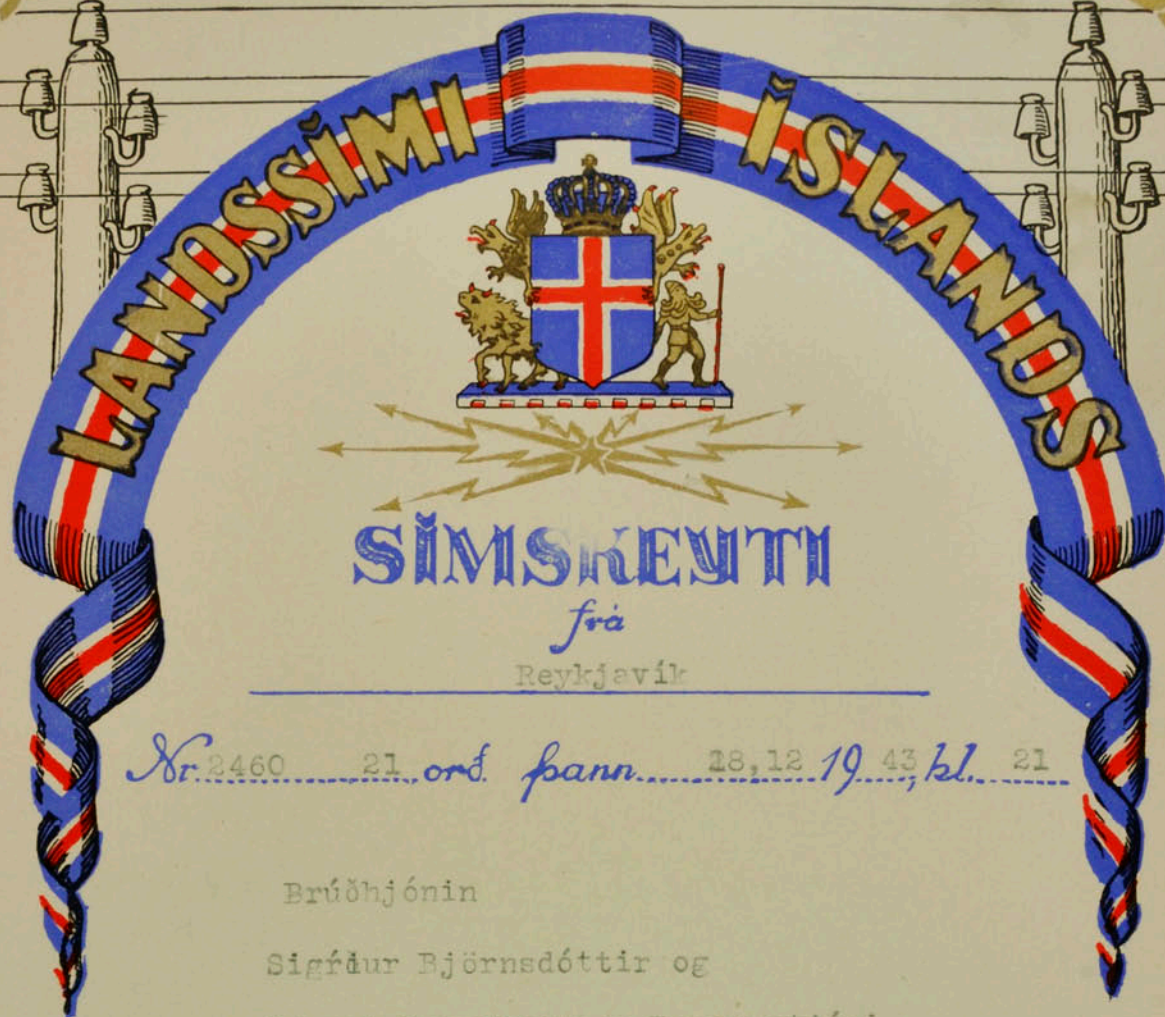 LANDSSÍMI ÍSLANDS
SÍMSKEYTI
frá
Reykjavík
Nr. 2460 21 orð þann 18,12 19 43, kl. 21
Brúðhjónin
Sigŕður Björnsdóttir og